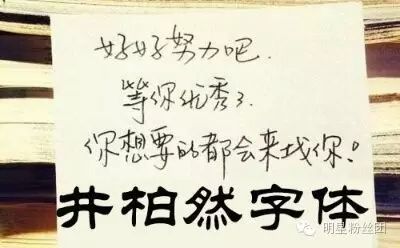 好好努力吧.
等你优秀了.
你想要的都会来找你!
井柏然字体
明星粉丝团